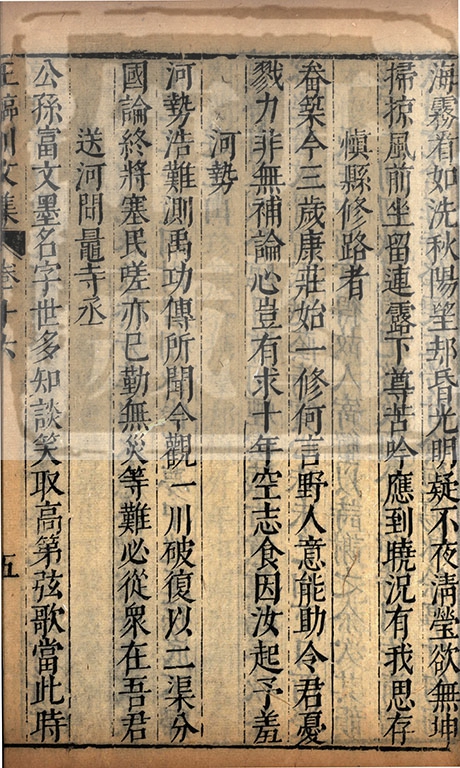 海霧看如洗秋陽望却昏光明疑不夜清瑩欲無坤
掃掠風前坐留連露下尊苦吟應到曉況有我思存
慎縣修路者
畚築今三歲康莊始一修何言野人意能助令君憂
戮力非無補論心豈有求十年空志食因汝起予羞
河勢
河勢浩難測禹功傳所聞今觀一川破復以二渠分
國論終將塞民嗟亦已勤無災等難必從衆在吾君
送河間晁寺丞
公孫富文墨名字世多知談笑取高第弦歌當此時
王臨川文集 卷十六 五